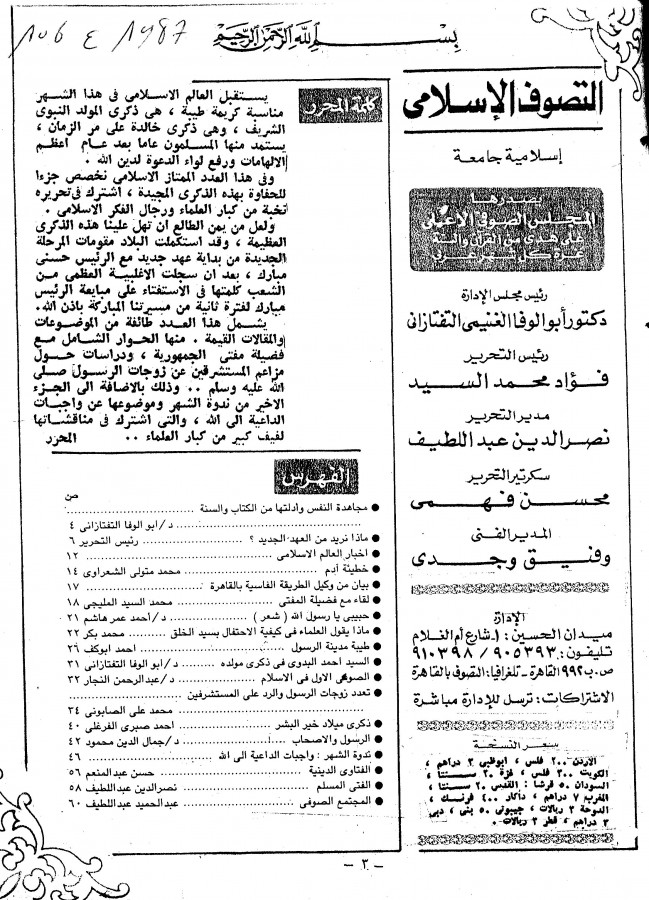 ١٠٦ ع ١٩٨٧
بسم الله الرحمن الرحيم
التصوف الإسلامى
إسلامية جامعة
يصدرها
المجلس الصوفى الأعلى
على هدى من القرآن والسنة
غرة كل شهر عربى
رئيس مجلس الإدارة
دكتور أبو الوفا الغنيمى التفتازانى
رئيس التحرير
فؤاد محمد السيد
مدير التحرير
نصر الدين عبد اللطيف
سكرتير التحرير
محسن فهمى
المدير الفنى
وفيق وجدى
الإدارة
ميدان الحسين : ١ شارع أم الغلام
تليفون : ٩٠٥٣٩٣ / ٩١٠٣٩٨
ص.ب ٩٩٢ القاهرة - تلغرافيا : التصوف بالقاهرة
الاشتراكات : ترسل للإدارة مباشرة
سعر النسخة
الأردن ٢٠٠ فلس ، ابوظبى ٣ دراهم ،
الكويت ٣٠٠ فلس ، غزة ٢٠ سنتا ،
السودان ٥٠ قرشا : القدس ٢٠ سنتا ،
المغرب ٧ دراهم ، داكار ٤٠٠ فرنك ،
الدوحة ٣ ريالات ، جيبوتى ٥٠ بنى ، دبى
٣ دراهم ، قطر ٣ ريالات .
كلمة المحرر
يستقبل العالم الاسلامى فى هذا الشهر
مناسبة كريمة طيبة ، هى ذكرى المولد النبوى
الشريف ، وهى ذكرى خالدة على مر الزمان ،
يستمد منها المسلمون عاما بعد عام اعظم
الالهامات ورفع لواء الدعوة لدين الله .
وفى هذا العدد الممتاز الاسلامى نخصص جزءا
للحفاوة بهذه الذكرى المجيدة ، اشترك فى تحريره
نخبة من كبار العلماء ورجال الفكر الاسلامى .
ولعل من يمن الطالع ان تهل علينا هذه الذكرى
العظيمة ، وقد استكملت البلاد مقومات المرحلة
الجديدة من بداية عهد جديد مع الرئيس حسنى
مبارك ، بعد ان سجلت الاغلبية العظمى من
الشعب كلمتها فى الاستفتاء على مبايعة الرئيس
مبارك لفترة ثانية من مسيرتنا المباركة باذن الله .
يشمل هذا العدد طائفة من الموضوعات
والمقالات القيمة . منها الحوار الشامل مع
فضيلة مفتى الجمهورية ، ودراسات حول
مزاعم المستشرقين عن زوجات الرسول صلى
الله عليه وسلم .. وذلك بالاضافة الى الجزء
الاخير من ندوة الشهر وموضوعها عن واجبات
الداعية الى الله ، والتى اشترك فى مناقشاتها
لفيف كبير من كبار العلماء .. المحرر
الفهرس
ص
● مجاهدة النفس وادلتها من الكتاب والسنة
د/ابو الوفا التفتازانى ٤
● ماذا نريد من العهد الجديد ؟ رئيس التحرير ٦
● اخبار العالم الاسلامى ١٢
● خطيئة آدم محمد متولى الشعراوى ١٤
● بيان من وكيل الطريقة الفاسية بالقاهرة ١٧
● لقاء مع فضيلة المفتى محمد السيد المليجى ١٨
● حبيبى يا رسول الله ( شعر ) د/احمد عمر هاشم ٢١
● ماذا يقول العلماء فى كيفية الاحتفال بسيد الخلق محمد بكر ٢٢
● طيبة مدينة الرسول احمد ابوكف ٢٦
● السيد احمد البدوى فى ذكرى مولده د/ابو الوفا التفتازانى ٣١
● الصوفى الاول فى الاسلام د/عبدالرحمن النجار ٣٢
● تعدد زوجات الرسول والرد على المستشرفين
محمد على الصابونى ٣٤
● ذكرى ميلاد خير البشر احمد صبرى الفرغلى ٤٠
● الرسول والاصحاب د/جمال الدين محمود ٤٢
● ندوة الشهر : واجبات الداعية الى الله ٤٦
● الفتاوى الدينية حسن عبدالمنعم ٥٦
● الفتى المسلم نصرالدين عبداللطيف ٥٨
● المجتمع الصوفى عبدالحميد عبداللطيف ٦٠
- ٣ -